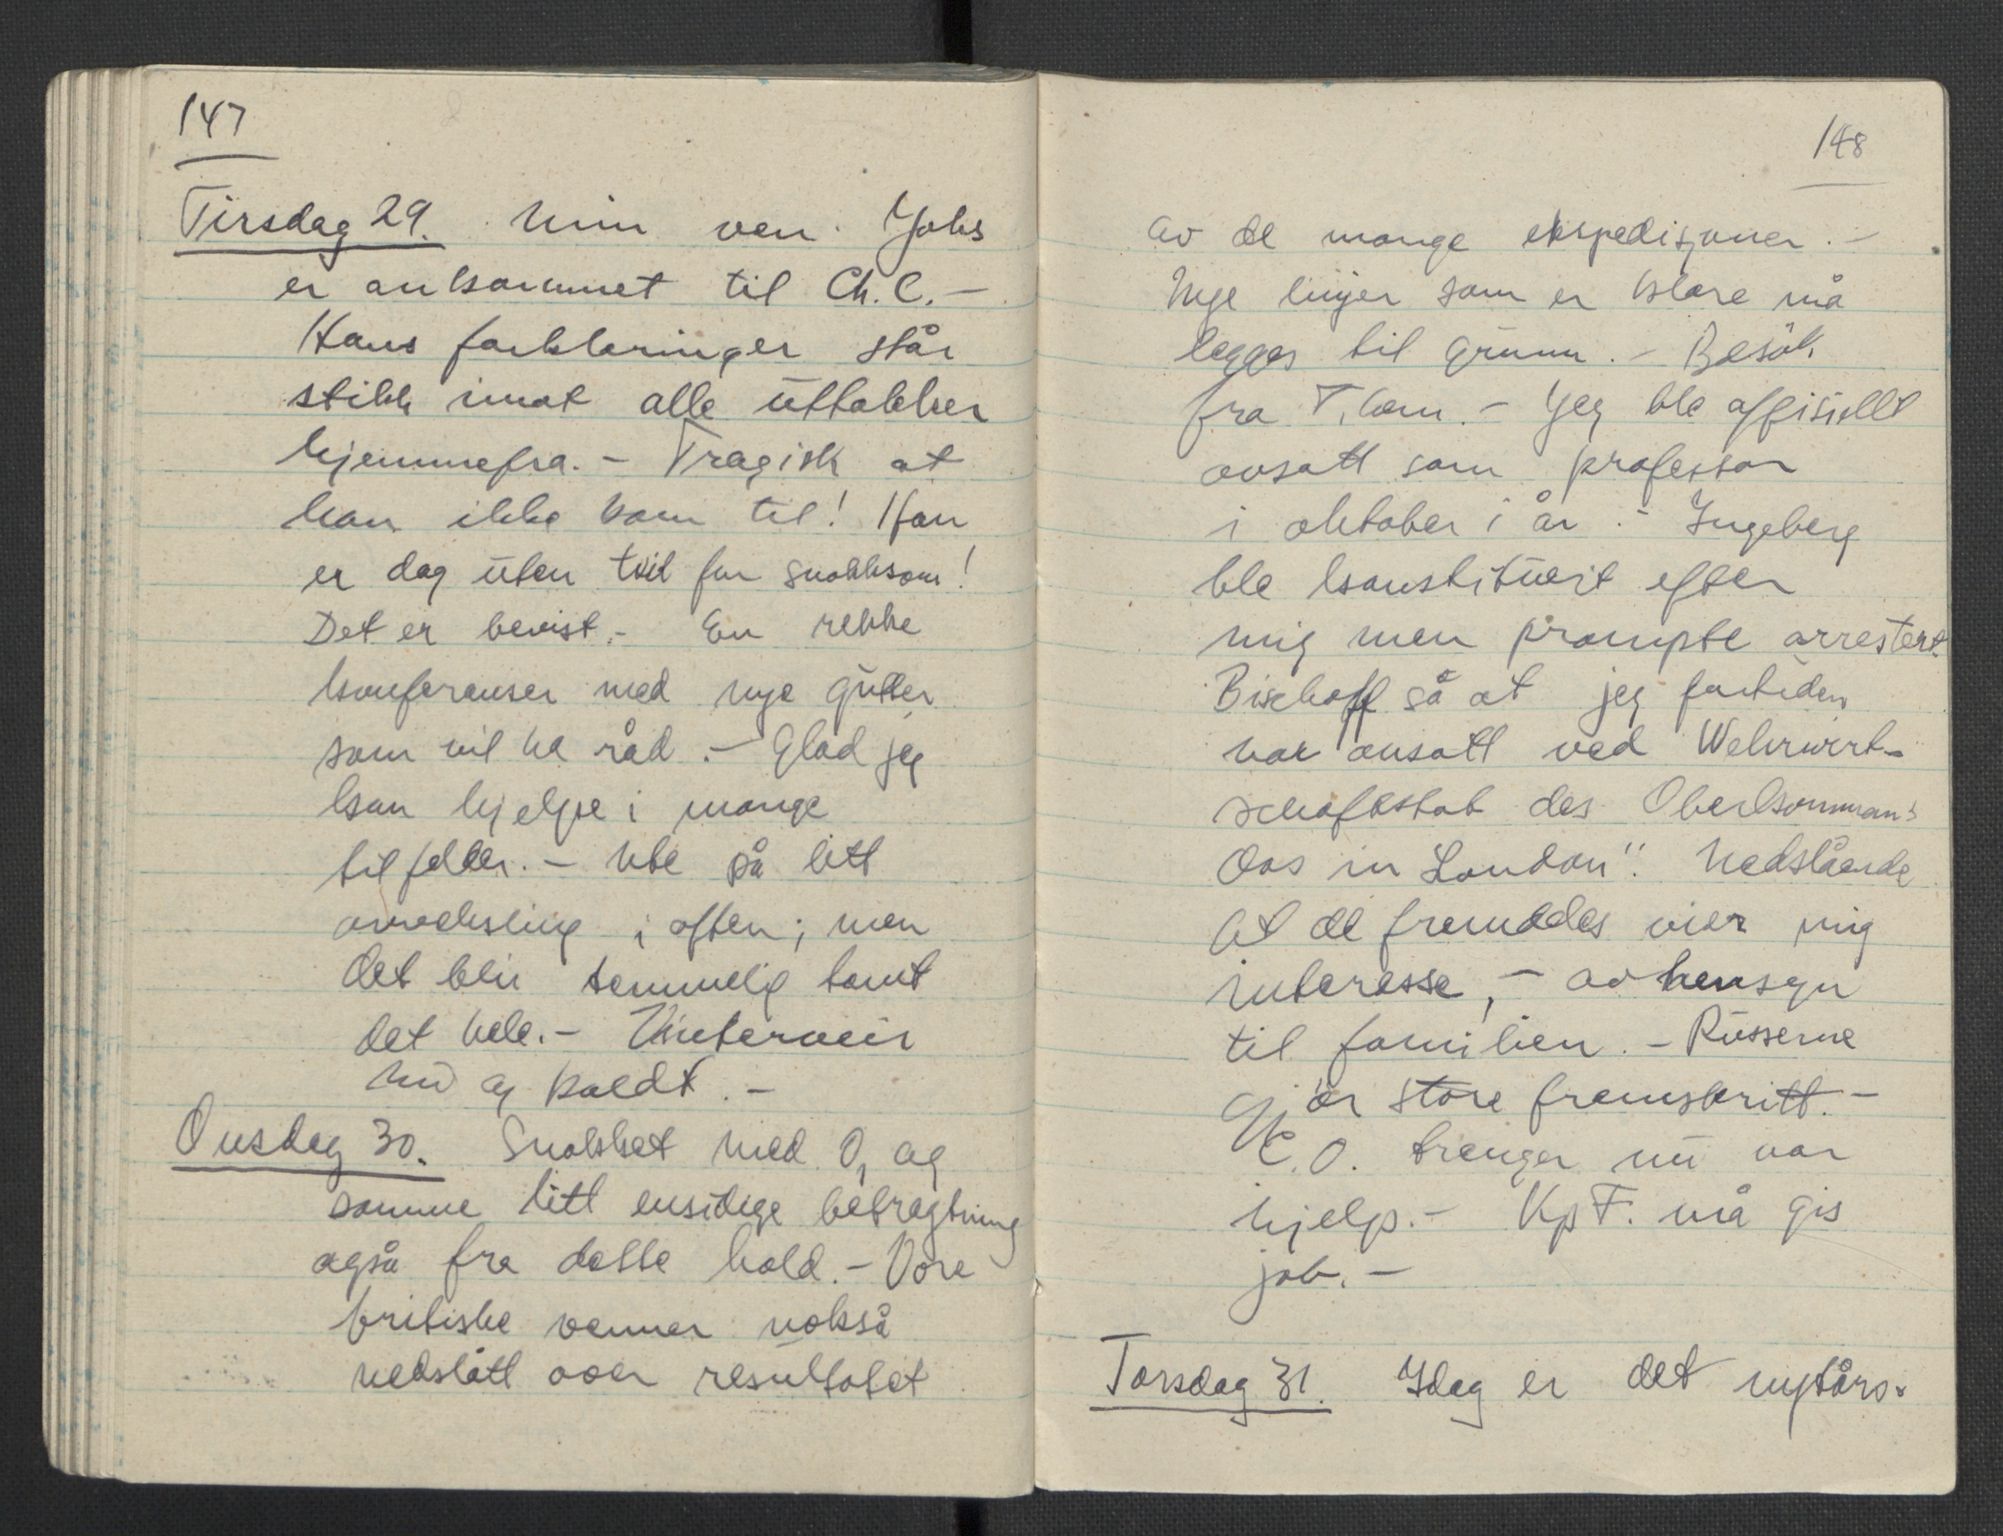 147
Tirsdag 29. Min ven Johs
er ankommet til Ch. C. -
Hans forklaringer står
stikk imot alle uttalelser
hjemmefra. - Tragisk at
han ikke kom til! Han
er dog uten tvil for snakksom!
Det er bevist. - En rekke
konferanser med nye gutter
som vil ha råd. - Glad jeg
kan hjelpe i mange
tilfeller. - Ute på litt
avveksling i aften; men
det blir temmelig tamt
det hele. - Vinterveir
nu og kaldt. -
Onsdag 30. Snakket med O, og
samme litt ensidige betragtning
også fra dette hold. - Våre
britiske venner nokså
nedslått over resultatet
148
av de mange ekspedisjoner. -
Nye linjer som er klare må
legges til grunn. - Besök
fra T. - Jeg ble offisiellt
avsatt som professor
i oktober i år. - Ingeberg
ble konstituert efter
mig men prompte arrestert.
Bischoff så at jeg fortiden
var ansatt ved Wehrwirt-
schaftstab des Oberkomman-
dos in London". Nedslående
at de fremdeles vier mig
interesse, - av hensyn
til familien. - Russerne
gjör store fremskritt. -
E. O. trenger nu vor
hjelp. - Kp F. må gis
job. -
Torsdag 31. Idag er det nytårs-